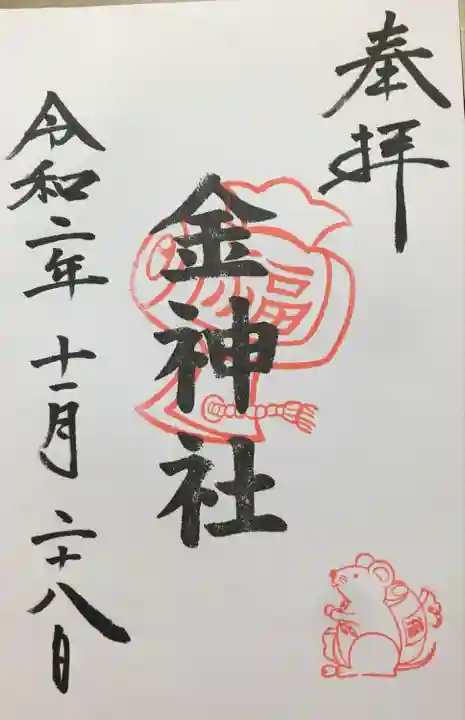 奉拝
金神社
福
令和二年十一月二十八日
福